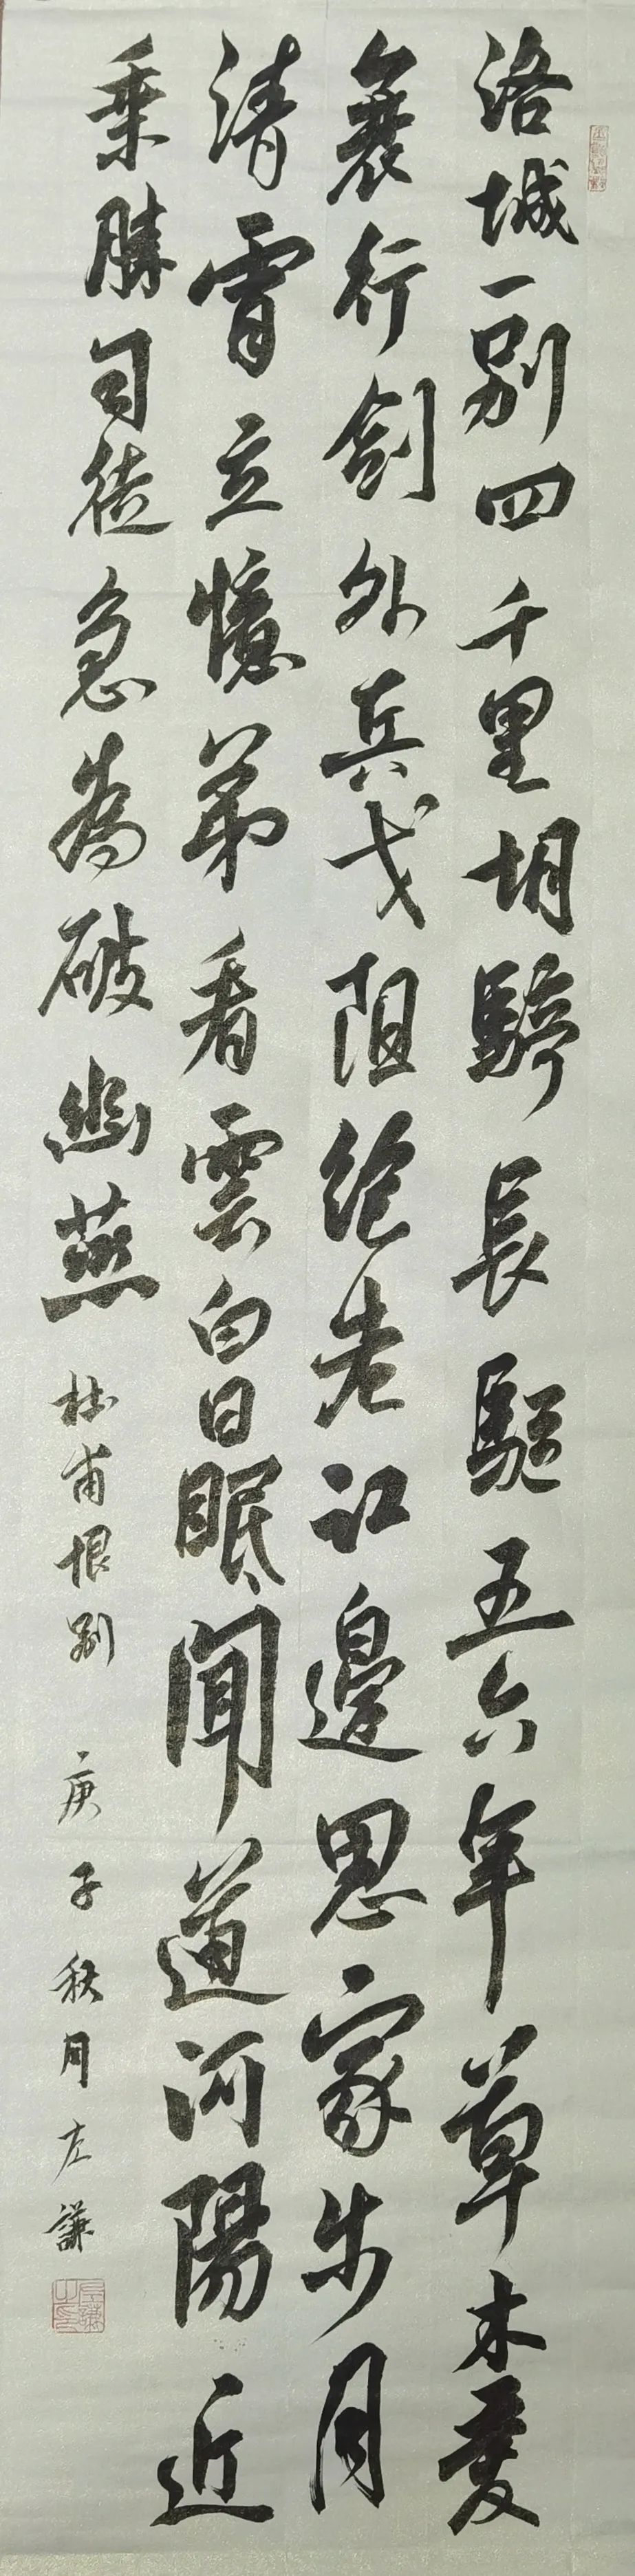 洛城一别四千里胡騎長驅五六年草木變
衰行劍外兵戈阻絶老江邊思家步月
清宵立憶弟看雲白日眠聞道河陽近
乘勝司徒急為破幽燕
杜甫恨别 庚子秋月左謙